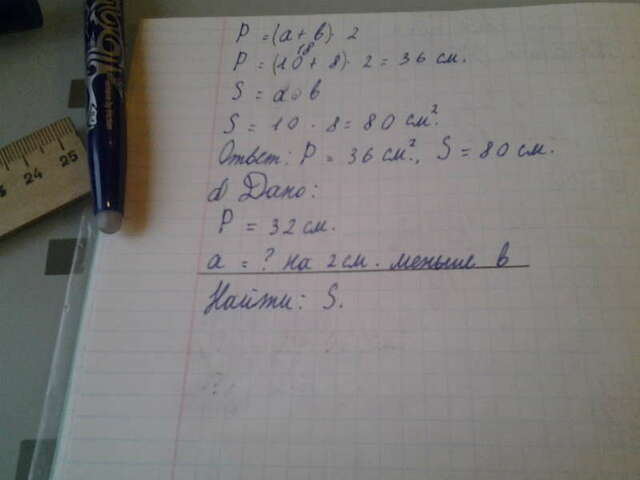 P = (a + в) · 2
18
P = (10 + 8) · 2 = 36 см.
S = a · в
S = 10 · 8 = 80 см².
Ответ: P = 36 см², S = 80 см.
d) Дано:
P = 32 см.
a = ? на 2 см. меньше в
Найти: S.
24 25